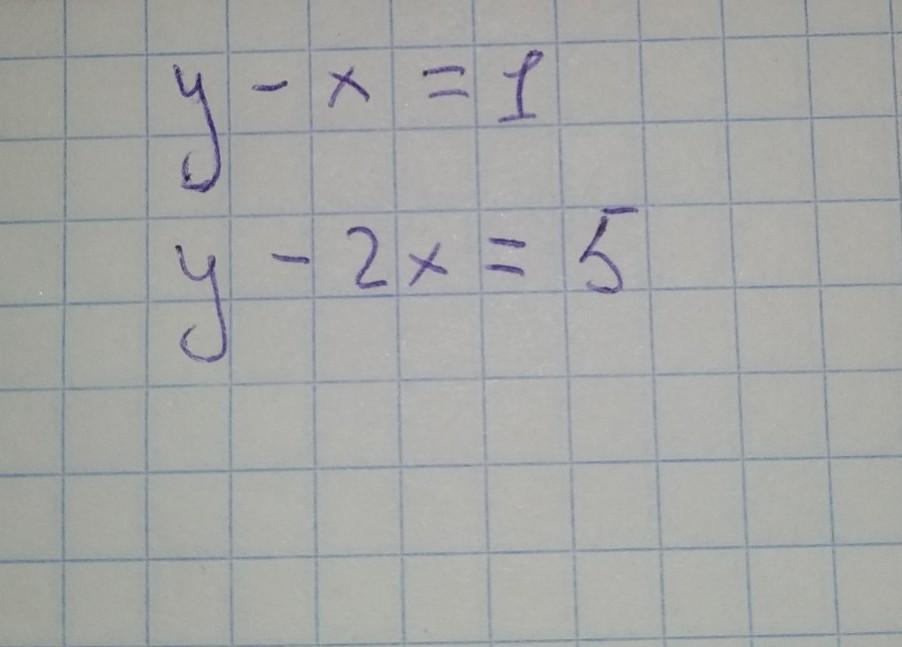 y - x = 1
y - 2x = 5